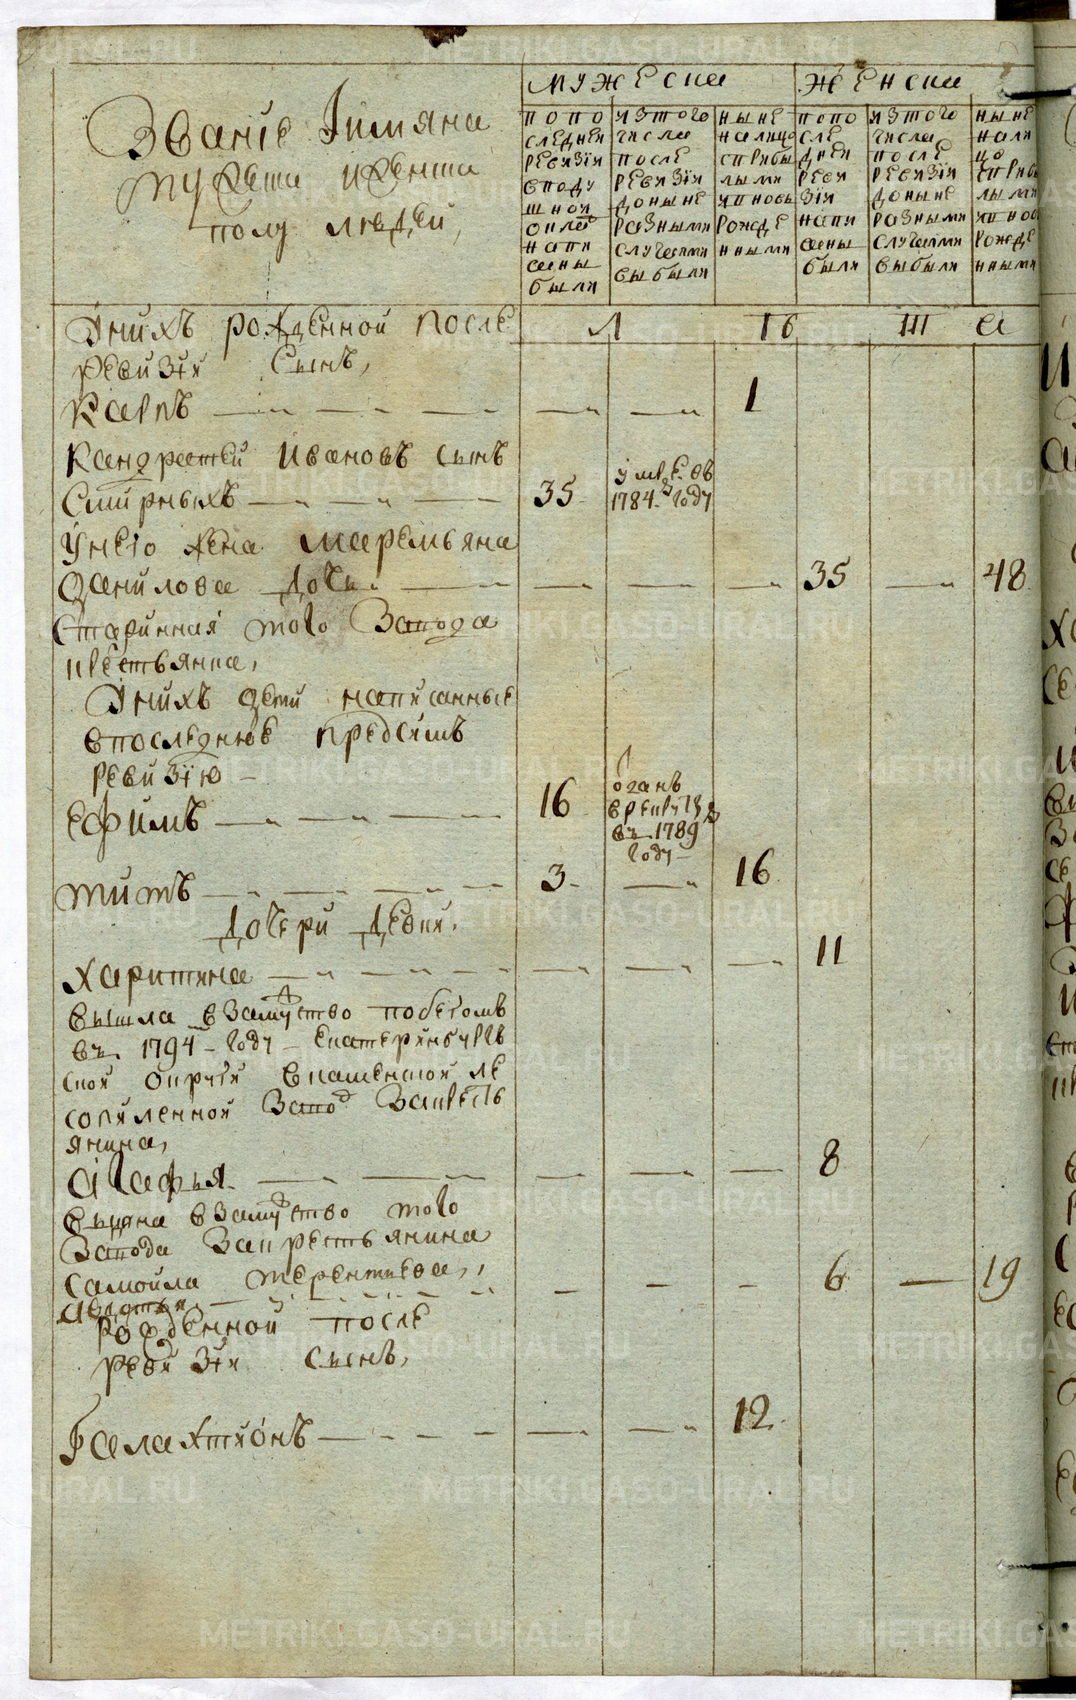 METRIKI.GASO-URAL.RU
мужеска
женска
Званiе Iимяна
мужеска иженска
полу людей,
попо следней ревизiи вподушной окладъ написаны были
изтого числа после ревизiи доныне разными случаями выбыли
ныне налицо сприбылыми ивновь рожденными
попо следней ревизiи написаны были
изтого числа после ревизiи доныне разными случаями выбыли
ныне налицо сприбылыми ивновь рожденными
Унихъ рожденной после
ревизiи Сынъ,
Карпъ 1
Кандратей Ивановъ сынъ
Смирныхъ 35 умре въ
1784 году
Унего жена Маремьяна
Данилова дочь 35 48
Старинная того Завода
крестьянка,
Унихъ дети написанные
впоследнюю предсимъ
ревизiю
Ефимъ 16 отданъ
врекруты
въ 1789
году
Титъ 3 16
Дочери девки,
Харитина 11
вышла взамужство побегомъ
въ 1794 году Екатеринбургъ
ской округи вкаменской же
лезной Заводъ Закресть
янина,
Агафья 8
выдана взамужство того
Завода Закрестьянина
Самойла Терентьева,
Авдотья 6 19
Рожденной после
ревизiи сынъ,
Галахтионъ 12